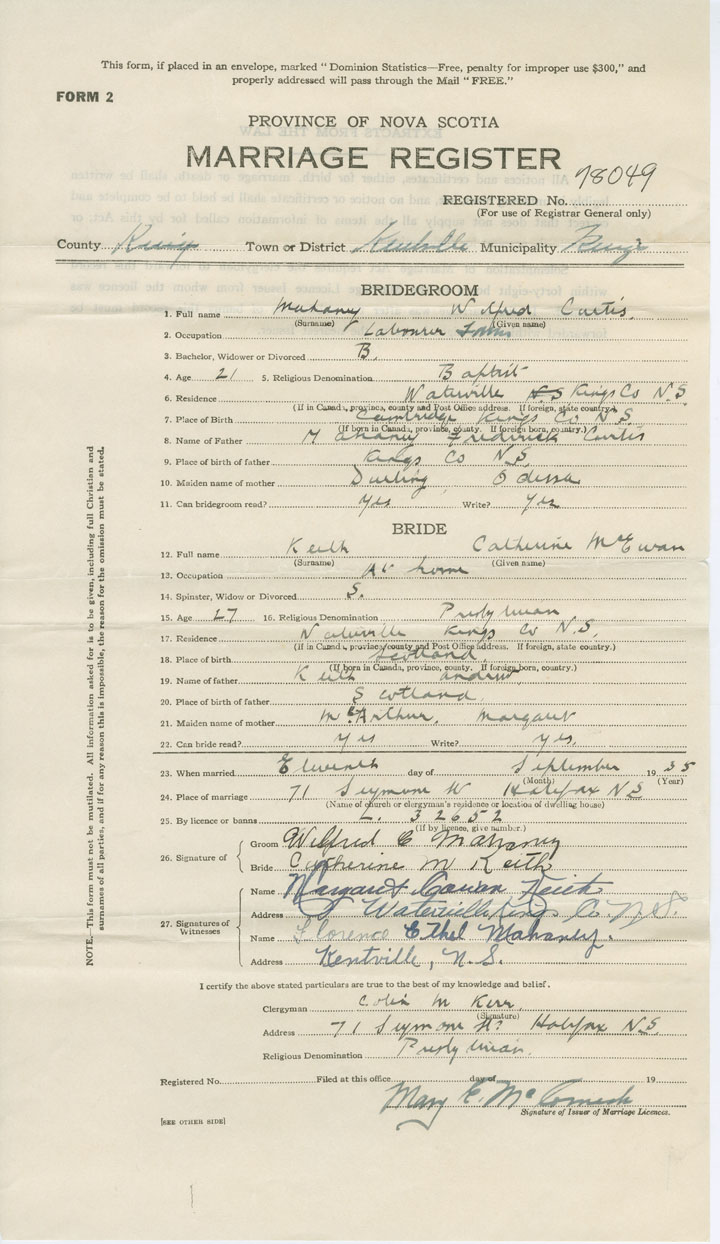 This form, if placed in an envelope, marked "Dominion Statistics—Free, penalty for improper use $300," and
properly addressed will pass through the Mail "FREE."
FORM 2
PROVINCE OF NOVA SCOTIA
MARRIAGE REGISTER
78049
REGISTERED No.
(For use of Registrar General only)
County Kings Town or District Kentville Municipality Kings
BRIDEGROOM
1. Full name Mahaney Wilfred Curtis
(Surname) (Given name)
2. Occupation Labourer
3. Bachelor, Widower or Divorced B.
4. Age 21 5. Religious Denomination Baptist
6. Residence Waterville N.S Kings Co N.S.
(If in Canada, province, county and Post Office address. If foreign, state country.)
7. Place of Birth Cambridge Kings Co N.S.
(If born in Canada, province, county. If foreign born, country.)
8. Name of Father Mahaney Frederick Curtis
9. Place of birth of father Kings Co N.S.
10. Maiden name of mother Durling Odessa
11. Can bridegroom read? Yes Write? Yes
BRIDE
12. Full name Keith Catherine McEwan
(Surname) (Given name)
13. Occupation At home
14. Spinster, Widow or Divorced S.
15. Age 27 16. Religious Denomination Presbyterian
17. Residence Waterville Kings Co N.S.
(If in Canada, province/county and Post Office address. If foreign, state country.)
18. Place of birth Scotland
(If born in Canada, province, county. If foreign born, country.)
19. Name of father Keith Andrew
20. Place of birth of father Scotland
21. Maiden name of mother McArthur, Margaret
22. Can bride read? Yes Write? Yes.
23. When married Eleventh day of September 1935
(Month) (Year)
24. Place of marriage 71 Seymour St Halifax N.S
(Name of church or clergyman's residence or location of dwelling house)
25. By licence or banns L. 32652
(If by licence, give number.)
26. Signature of
Groom Wilfred C Mahaney
Bride Catherine M Keith
27. Signatures of Witnesses
Name Margaret Cowan Keith
Address Waterville, Kings Co N.S.
Name Florence Ethel Mahaney.
Address Kentville, N.S.
I certify the above stated particulars are true to the best of my knowledge and belief.
Clergyman Colin M Kerr
(Signature)
Address 71 Seymour St. Halifax N.S.
Religious Denomination Presbyterian
Registered No. Filed at this office day of 19
Mary E. McCormack
Signature of Issuer of Marriage Licences.
[SEE OTHER SIDE]
NOTE.—This form must not be mutilated. All information asked for is to be given, including full Christian and
surnames of all parties, and if for any reason this is impossible, the reason for the omission must be stated.